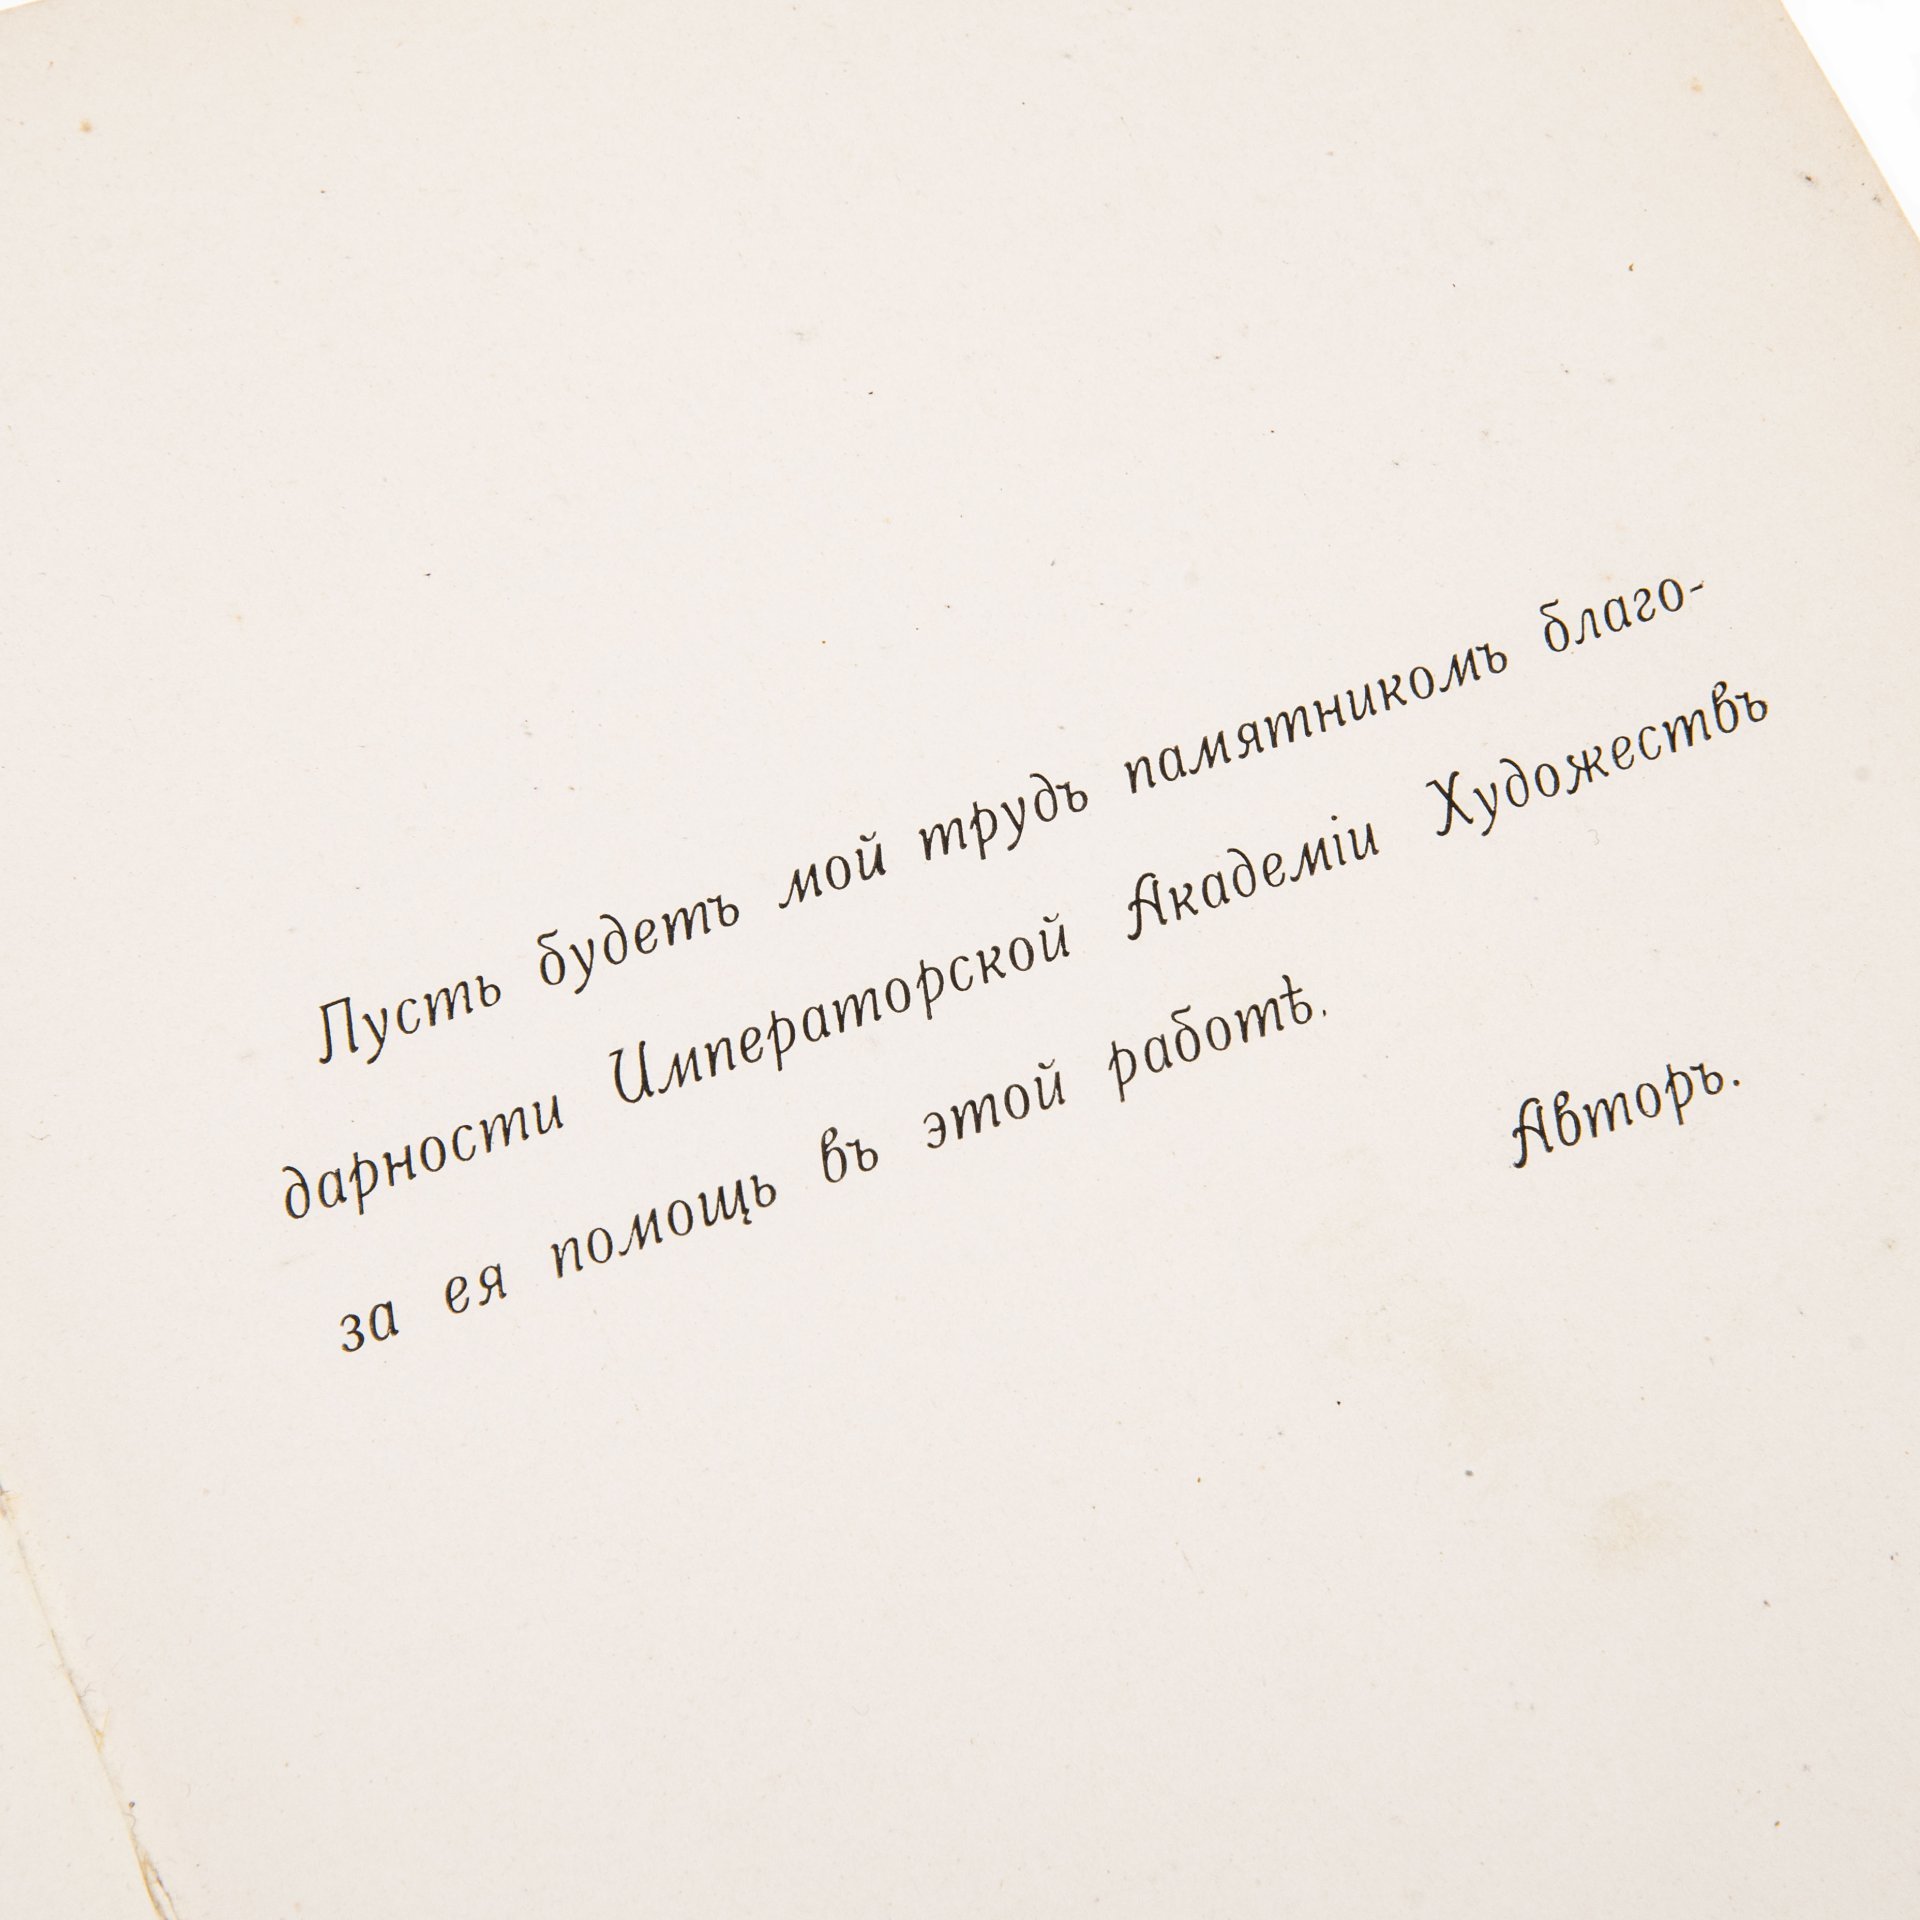 Пусть будетъ мой трудъ памятникомъ благо-
дарности Императорской Академіи Художествъ
за ея помощь въ этой работѣ.
Авторъ.